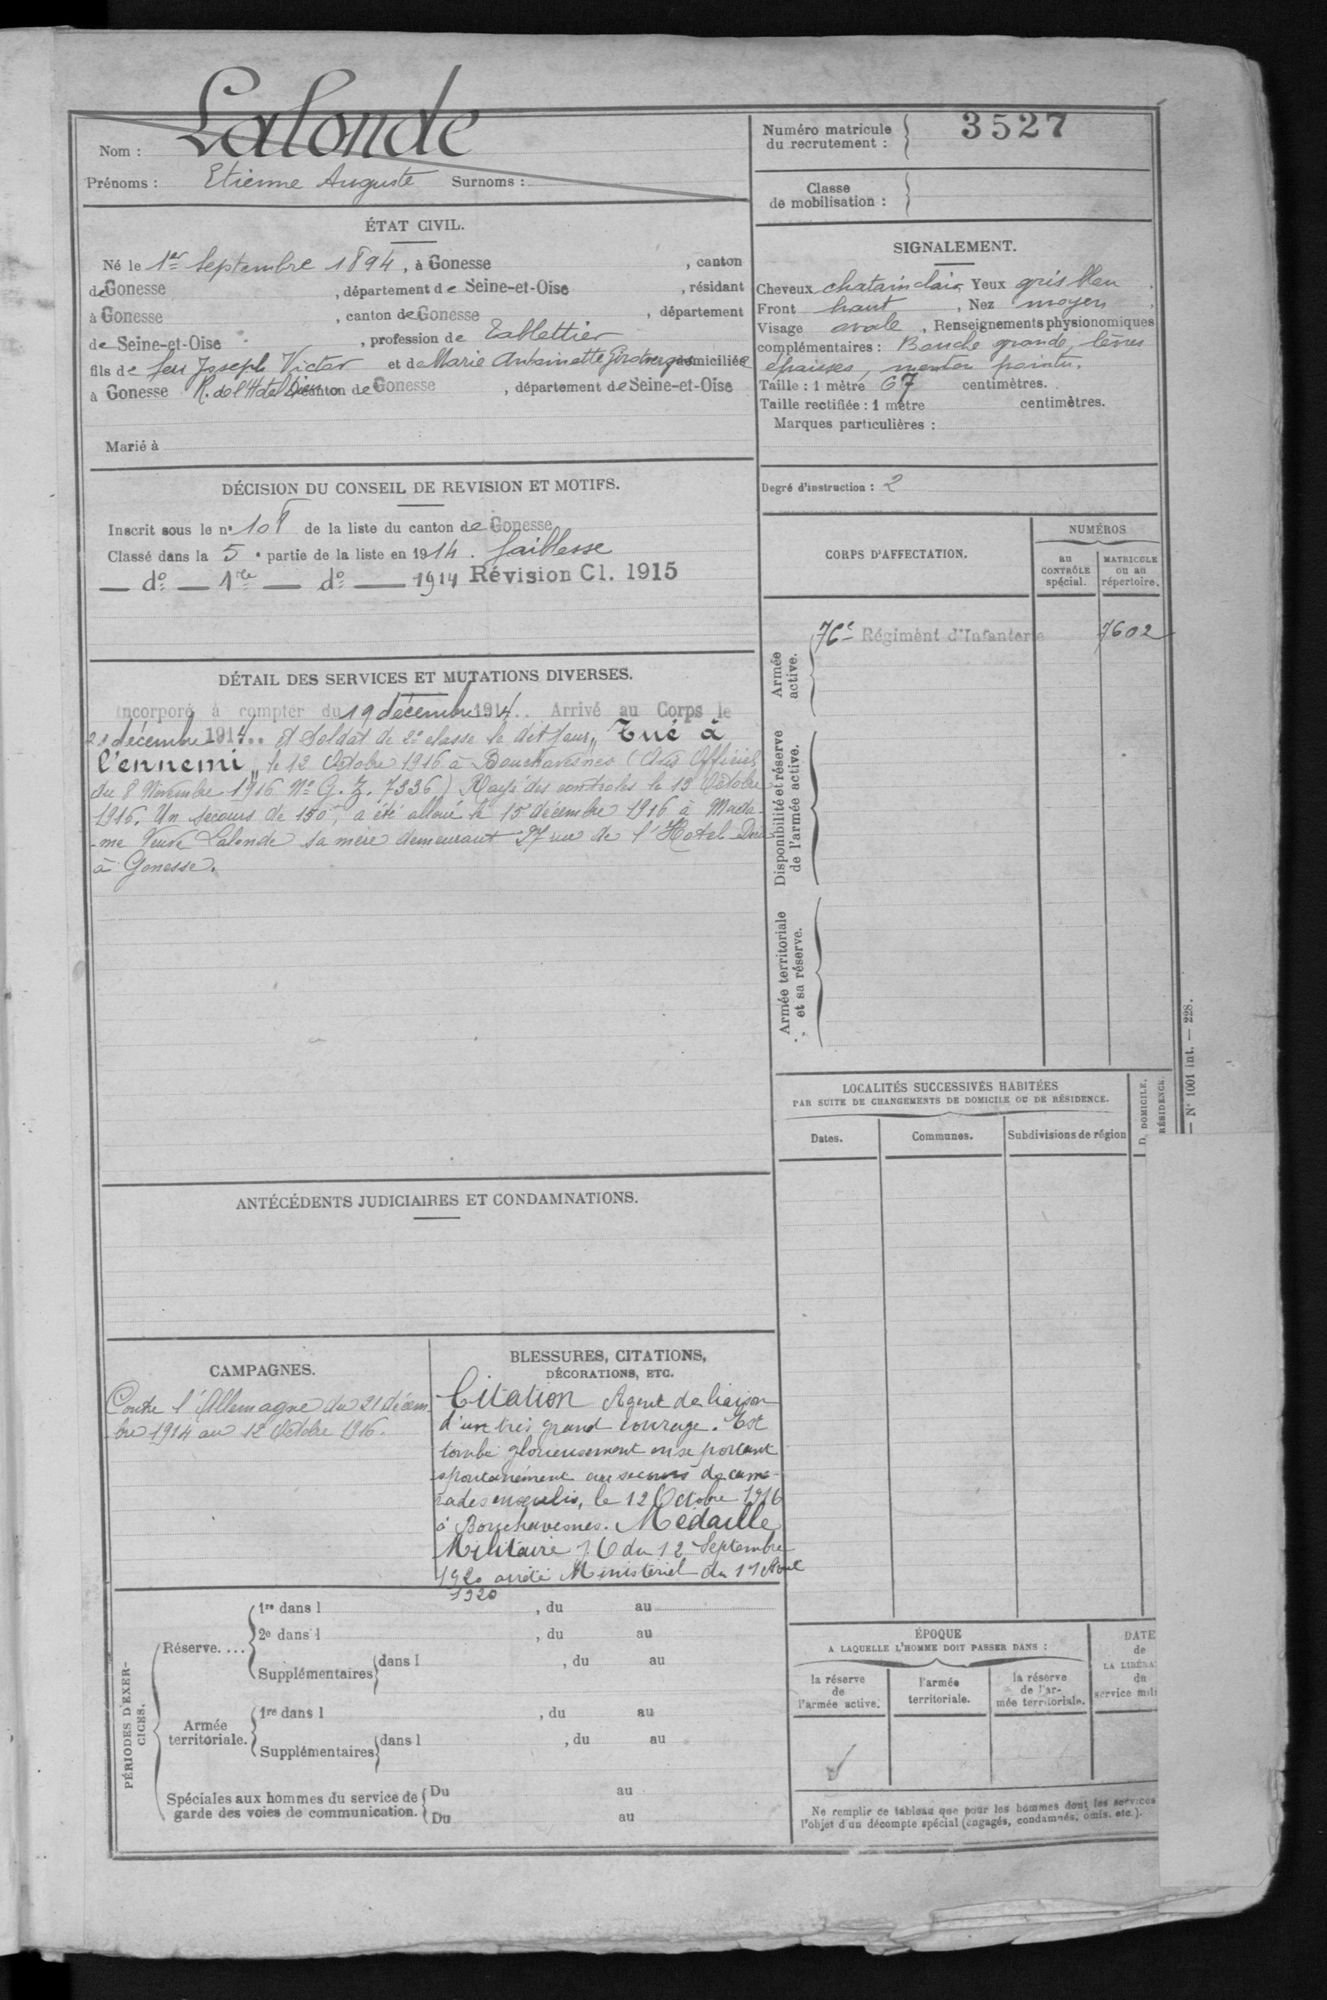 Nom : Lalonde
Prénoms : Etienne Auguste Surnoms :
Numéro matricule du recrutement : 3527
Classe de mobilisation :
ÉTAT CIVIL.
Né le 1er Septembre 1894, à Gonesse, canton
de Gonesse, département de Seine-et-Oise, résidant
à Gonesse, canton de Gonesse, département
de Seine-et-Oise, profession de Tablettier
fils de feu Joseph Victor et de Marie Antoinette domiciliée
à Gonesse R. de l'Hotel Dieu canton de Gonesse, département de Seine-et-Oise
Marié à
SIGNALEMENT.
Cheveux chatain clair, Yeux gris bleu,
Front haut, Nez moyen,
Visage ovale, Renseignements physionomiques
complémentaires : Bouche grande, lèvres
épaisses, menton pointu.
Taille : 1 mètre 67 centimètres.
Taille rectifiée : 1 mètre centimètres.
Marques particulières :
Degré d'instruction : 2
DÉCISION DU CONSEIL DE REVISION ET MOTIFS.
Inscrit sous le n° 108 de la liste du canton de Gonesse
Classé dans la 5e partie de la liste en 1914. faiblesse
— do — 1re — do — 1914 Révision Cl. 1915
CORPS D'AFFECTATION.
NUMÉROS
au CONTRÔLE spécial.
MATRICULE ou au répertoire.
Armée active.
76e Régiment d'Infanterie 7602
Disponibilité et réserve de l'armée active.
Armée territoriale et sa réserve.
DÉTAIL DES SERVICES ET MUTATIONS DIVERSES.
Incorporé à compter du 19 décembre 1914.. Arrivé au Corps le
21 décembre 1914.. et Soldat de 2e classe le dit jour „ Tué à
l'ennemi „ le 12 Octobre 1916 à Bouchavesnes (Avis Officiel
du 8 Novembre 1916 No G. Z. 7336) Rayé des controles le 13 Octobre
1916. Un secours de 150f a été alloué le 15 décembre 1916 à Mada-
-me Veuve Lalonde sa mère demeurant 27 rue de l'Hotel Dieu
à Gonesse.
LOCALITÉS SUCCESSIVES HABITÉES
PAR SUITE DE CHANGEMENTS DE DOMICILE OU DE RÉSIDENCE.
Dates. Communes. Subdivisions de région
D. DOMICILE.
RÉSIDENCE.
— N° 1001 int. — 228.
ANTÉCÉDENTS JUDICIAIRES ET CONDAMNATIONS.
CAMPAGNES.
Contre l'Allemagne du 21 décem-
-bre 1914 au 12 Octobre 1916.
BLESSURES, CITATIONS,
DÉCORATIONS, ETC.
Citation Agent de liaison
d'un très grand courage. Est
tombé glorieusement en se portant
spontanément au secours de cama-
rades ensevelis, le 12 Octobre 1916
à Bouchavesnes. Médaille
Militaire JO du 12 Septembre
1920 arrêté Ministériel du 17 Avril
1920
PÉRIODES D'EXERCICES.
Réserve....
1re dans l , du au
2e dans l , du au
Supplémentaires dans l , du au
Armée territoriale.
1re dans l , du au
Supplémentaires dans l , du au
Spéciales aux hommes du service de garde des voies de communication.
Du au
Du au
ÉPOQUE
A LAQUELLE L'HOMME DOIT PASSER DANS :
la réserve de l'armée active.
l'armée territoriale.
la réserve de l'armée territoriale.
DATE
de
LA LIBÉRA
du
service mili
Ne remplir ce tableau que pour les hommes dont les services
l'objet d'un décompte spécial (engagés, condamnés, omis, etc.).